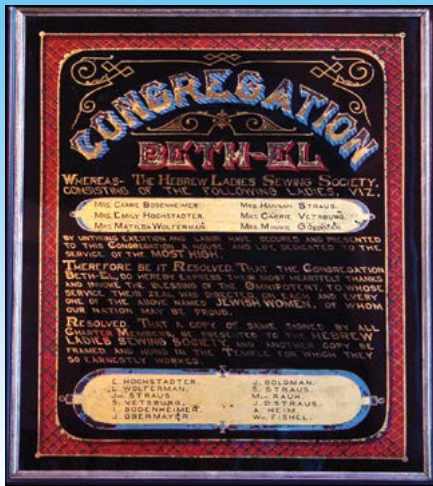 CONGREGATION
BETH-EL
WHEREAS- THE HEBREW LADIES SEWING SOCIETY,
CONSISTING OF THE FOLLOWING LADIES, VIZ.
MRS. CARRIE BODENHEIMER. MRS. HANNAH STRAUS.
MRS. EMILY HOCHSTADTER. MRS. CARRIE VETSBURG.
MRS. MATILDA WOLFERMAN. MRS. MINNIE GOLDMAN.
BY UNTIRING EXERTION AND LABOR HAVE SECURED AND PRESENTED
TO THIS CONGREGATION A HOUSE AND LOT, DEDICATED TO THE
SERVICE OF THE MOST HIGH.
THEREFORE BE IT RESOLVED THAT THE CONGREGATION
BETH-EL, DO HEREBY EXPRESS THEIR MOST HEARTFELT THANKS
AND INVOKE THE BLESSING OF THE OMNIPOTENT, TO WHOSE
SERVICE THEIR ZEAL WAS DIRECTED, ON EACH AND EVERY
ONE OF THE ABOVE NAMED JEWISH WOMEN, OF WHOM
OUR NATION MAY BE PROUD.
RESOLVED THAT A COPY OF SAME SIGNED BY ALL
CHARTER MEMBERS, BE PRESENTED TO THE HEBREW
LADIES SEWING SOCIETY, AND ANOTHER COPY BE
FRAMED AND HUNG IN THE TEMPLE FOR WHICH THEY
SO EARNESTLY WORKED.
E. HOCHSTADTER. J. GOLDMAN.
L. WOLFERMAN. S. STRAUS.
STRAUS. RAUH.
S. VETSBURG. J. D. STRAUS.
I. BODENHEIMER. A. HEIM.
J. OBERMAYER. WM. FISHEL.